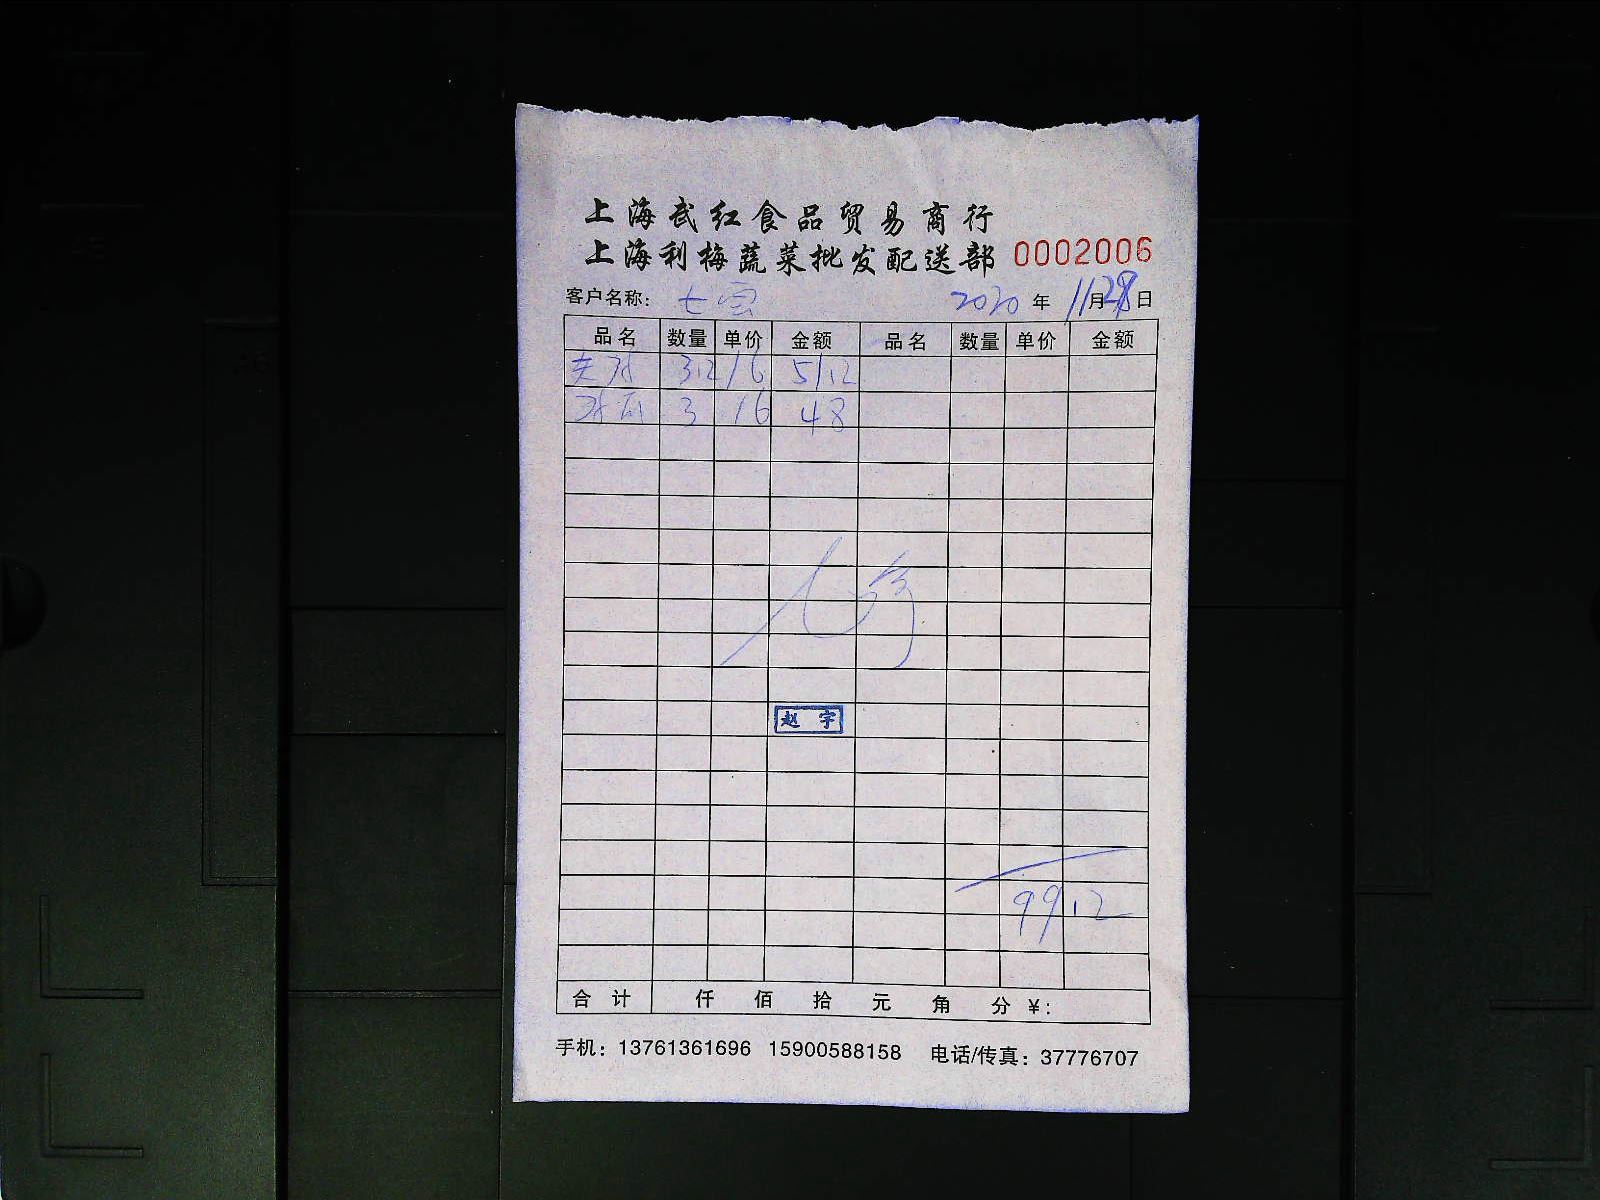 上海武红食品贸易商行
上海利梅蔬菜批发配送部 0002006
客户名称: 七宝 2020 年 11月28日
品名 数量 单价 金额 品名 数量 单价 金额
3.2 16 51.2
3 16 48
赵宇
99.12
合计 仟 佰 拾 元 角 分 ¥:
手机: 13761361696 15900588158 电话/传真: 37776707